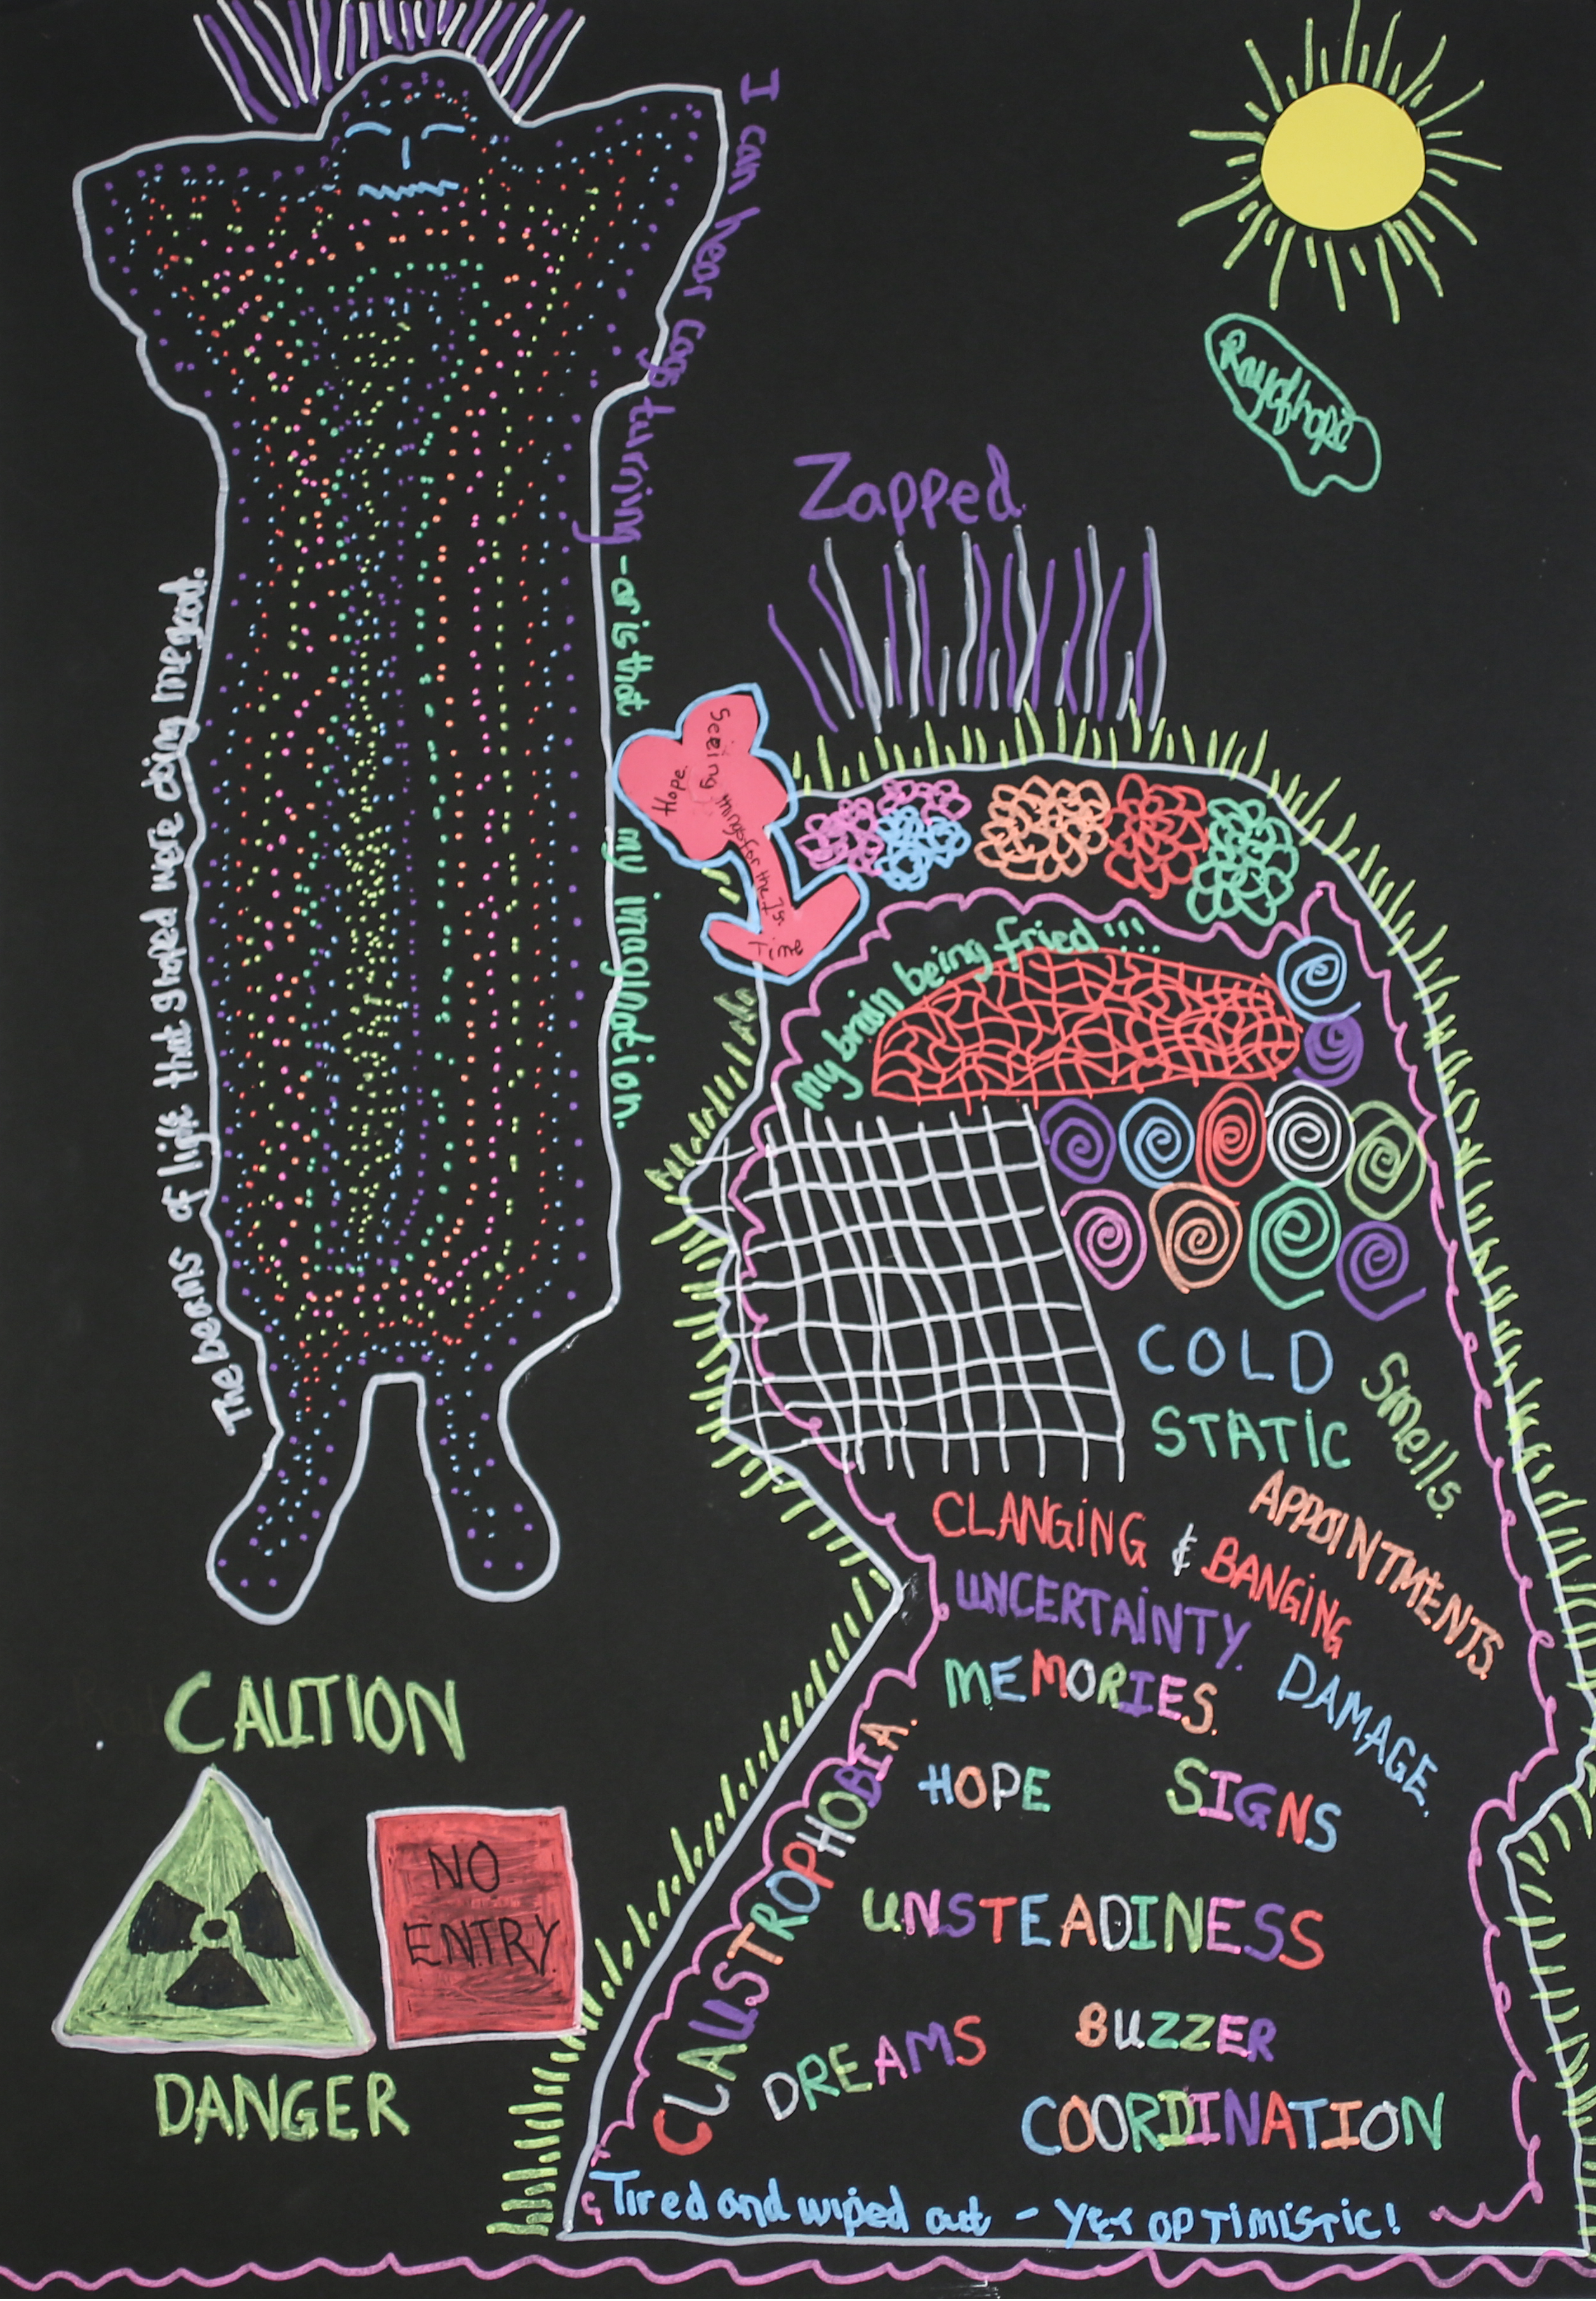 I can hear cogs turning - or is that my imagination.
The beans of light that I hoped were doing me good.
Ray of hope
Zapped
Hope.
Seeing things for the 1st Time
My brain being fried!!!!
COLD
STATIC
Smells.
APPOINTMENTS.
CLANGING & BANGING
UNCERTAINTY.
MEMORIES.
DAMAGE.
HOPE
SIGNS
CLAUSTROPHOBIA.
UNSTEADINESS
DREAMS
BUZZER
COORDINATION
Tired and wiped out - YET OPTIMISTIC!
CAUTION
NO
ENTRY.
DANGER